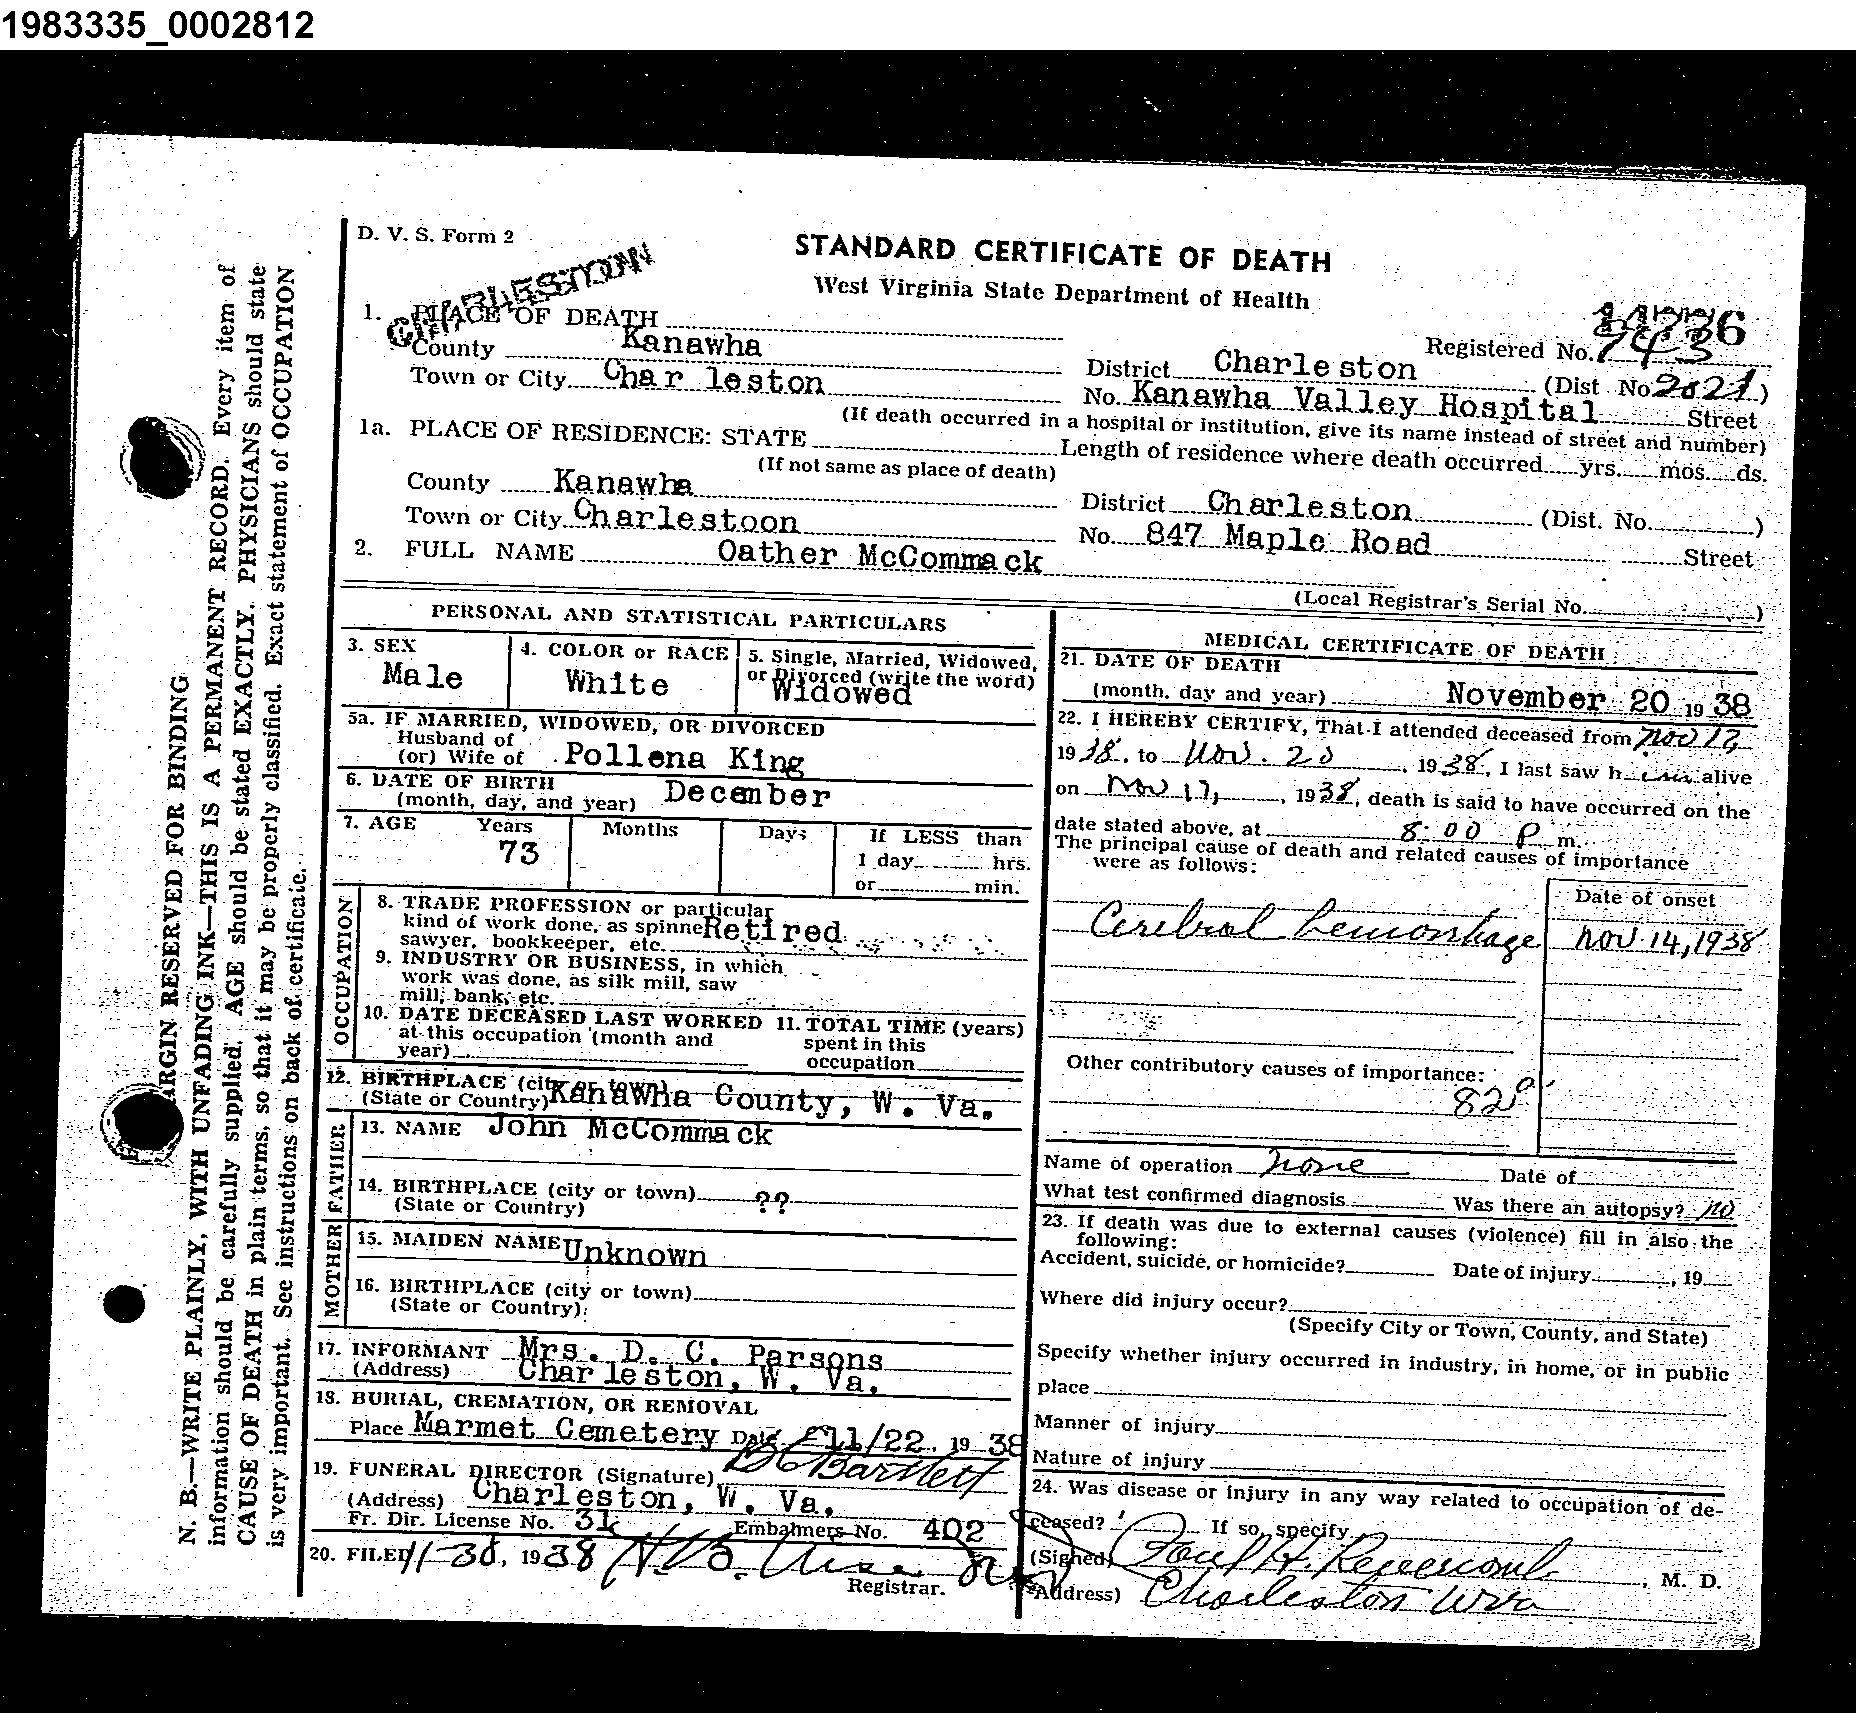 1983335_0002812
D. V. S. Form 2
STANDARD CERTIFICATE OF DEATH
West Virginia State Department of Health
CHARLESTON
1. PLACE OF DEATH
Registered No.
County Kanawha
District Charleston (Dist No 2021)
Town or City Char leston
No. Kanawha Valley Hospital Street
(If death occurred in a hospital or institution, give its name instead of street and number)
1a. PLACE OF RESIDENCE: STATE
Length of residence where death occurred yrs. mos. ds.
(If not same as place of death)
County Kanawha
District Charleston (Dist. No. )
Town or City Charlestoon
No. 847 Maple Road Street
2. FULL NAME Oather McCommack
(Local Registrar's Serial No. )
PERSONAL AND STATISTICAL PARTICULARS
3. SEX
Male
4. COLOR or RACE
White
5. Single, Married, Widowed,
or Divorced (write the word)
Widowed
5a. IF MARRIED, WIDOWED, OR DIVORCED
Husband of
(or) Wife of Pollena King
6. DATE OF BIRTH
(month, day, and year) December
7. AGE Years Months Days If LESS than
73
1 day hrs.
or min.
OCCUPATION
8. TRADE PROFESSION or particular
kind of work done, as spinne Retired
sawyer, bookkeeper, etc.
9. INDUSTRY OR BUSINESS, in which
work was done, as silk mill, saw
mill, bank, etc.
10. DATE DECEASED LAST WORKED
at this occupation (month and
year)
11. TOTAL TIME (years)
spent in this
occupation
12. BIRTHPLACE (city or town)
(State or Country) Kanawha County, W. Va.
FATHER
13. NAME John McCommack
14. BIRTHPLACE (city or town) ??
(State or Country)
MOTHER
15. MAIDEN NAME Unknown
16. BIRTHPLACE (city or town)
(State or Country)
17. INFORMANT Mrs. D. C. Parsons
(Address) Char leston, W. Va.
18. BURIAL, CREMATION, OR REMOVAL
Place Marmet Cemetery Date 11/22, 19 38
19. FUNERAL DIRECTOR (Signature) Bartlett
(Address) Charleston, W. Va.
Fr. Dir. License No. 31 Embalmers No. 402
20. FILED 11-30, 1938
Registrar.
MEDICAL CERTIFICATE OF DEATH
21. DATE OF DEATH
(month, day and year) November 20 19 38
22. I HEREBY CERTIFY, That I attended deceased from Nov 17
1938, to Nov. 20, 1938, I last saw h im alive
on Nov 17, 1938, death is said to have occurred on the
date stated above, at 8:00 P m.
The principal cause of death and related causes of importance
were as follows:
Date of onset
Cerebral hemorrhage Nov 14, 1938
Other contributory causes of importance:
82a
Name of operation none Date of
What test confirmed diagnosis Was there an autopsy? no
23. If death was due to external causes (violence) fill in also the
following:
Accident, suicide, or homicide? Date of injury , 19
Where did injury occur?
(Specify City or Town, County, and State)
Specify whether injury occurred in industry, in home, or in public
place
Manner of injury
Nature of injury
24. Was disease or injury in any way related to occupation of de-
ceased? If so, specify
(Signed) Paul H. Revercomb, M. D.
(Address) Charleston W Va
MARGIN RESERVED FOR BINDING
N. B.—WRITE PLAINLY, WITH UNFADING INK—THIS IS A PERMANENT RECORD. Every item of
information should be carefully supplied. AGE should be stated EXACTLY. PHYSICIANS should state
CAUSE OF DEATH in plain terms, so that it may be properly classified. Exact statement of OCCUPATION
is very important. See instructions on back of certificate.